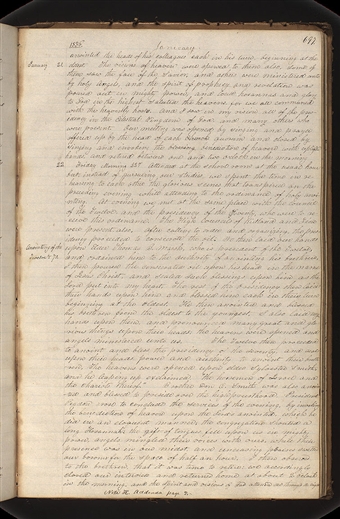 697
1836
January
anointed the heads of his colleagues each in his turn beginning at the
January 21. eldest. The visions of heaven were opened to these also, some of
them saw the face of the Savior, and others were ministered unto
by holy angels, and the spirit of prophecy and revelation was
poured out in mighty power, and loud hosannas and glory
to God in the highest, saluted the heavens for we all communed
with the heavenly hosts. And I saw in my vision all of the pres-
idency in the Celestial Kingdom of God, and many others who
were present. Our meeting was opened by singing and prayer
offered up by the head of each quorum, and closed by
singing and invoking the benediction of heaven with uplifted
hands and retired between one and two o'clock in the morning.
22. Friday Morning 22nd. Attended at the school room at the usual hour
but instead of pursuing our studies, we spent the time in re-
hearsing to each other the glorious scenes that transpired on the
preceding evening while attending to the ordinance of holy anoin-
ting. At evening we met at the same place, with the Council
of the Twelve and the presidency of the Seventy who were to re-
ceive this ordinance. The High Councils of Kirtland and Zion
were present also. After calling to order and organizing, the pres-
idency proceeded to consecrate the oil. We then laid our hands
Anointing of the upon Elder Thomas B. Marsh, who is president of the Twelve
Twelve &c and ordained him to the authority of anointing his brethren.
I then poured the consecrated oil upon his head in the name
of Jesus Christ and sealed such blessings upon him as the
Lord put into my heart. The rest of the presidency then laid
their hands upon him and blessed him each in their turn
beginning at the oldest. He then anointed and blessed
his brethren from the oldest to the youngest. I also laid my
hands upon them and pronounced many great and glo-
rious things upon their heads. The heavens were opened and
angels ministered unto us. The Twelve then proceeded
to anoint and bless the presidency of the Seventy and seal
upon their heads power and authority to anoint their breth-
ren. The heavens were opened upon Elder Sylvester Smith
and he leaping up exclaimed, The horsemen of Israel and
the chariots thereof.
President
Rigdon arose to conclude the services of the evening by invoking
the benediction of heaven upon the Lord's anointed which he
did in an eloquent manner, the congregation shouted a
long Hosannah: the gift of tongues fell upon us in mighty
power, angels mingled their voices with ours, while their
presence was in our midst, and unceasing praises swelled
our bosoms for the space of half an hour. I then observed
to the brethren, that it was time to retire, we accordingly
closed our interview and returned home at about 2 o'clock
in the morning, and the spirit and visions of God attended me through the night